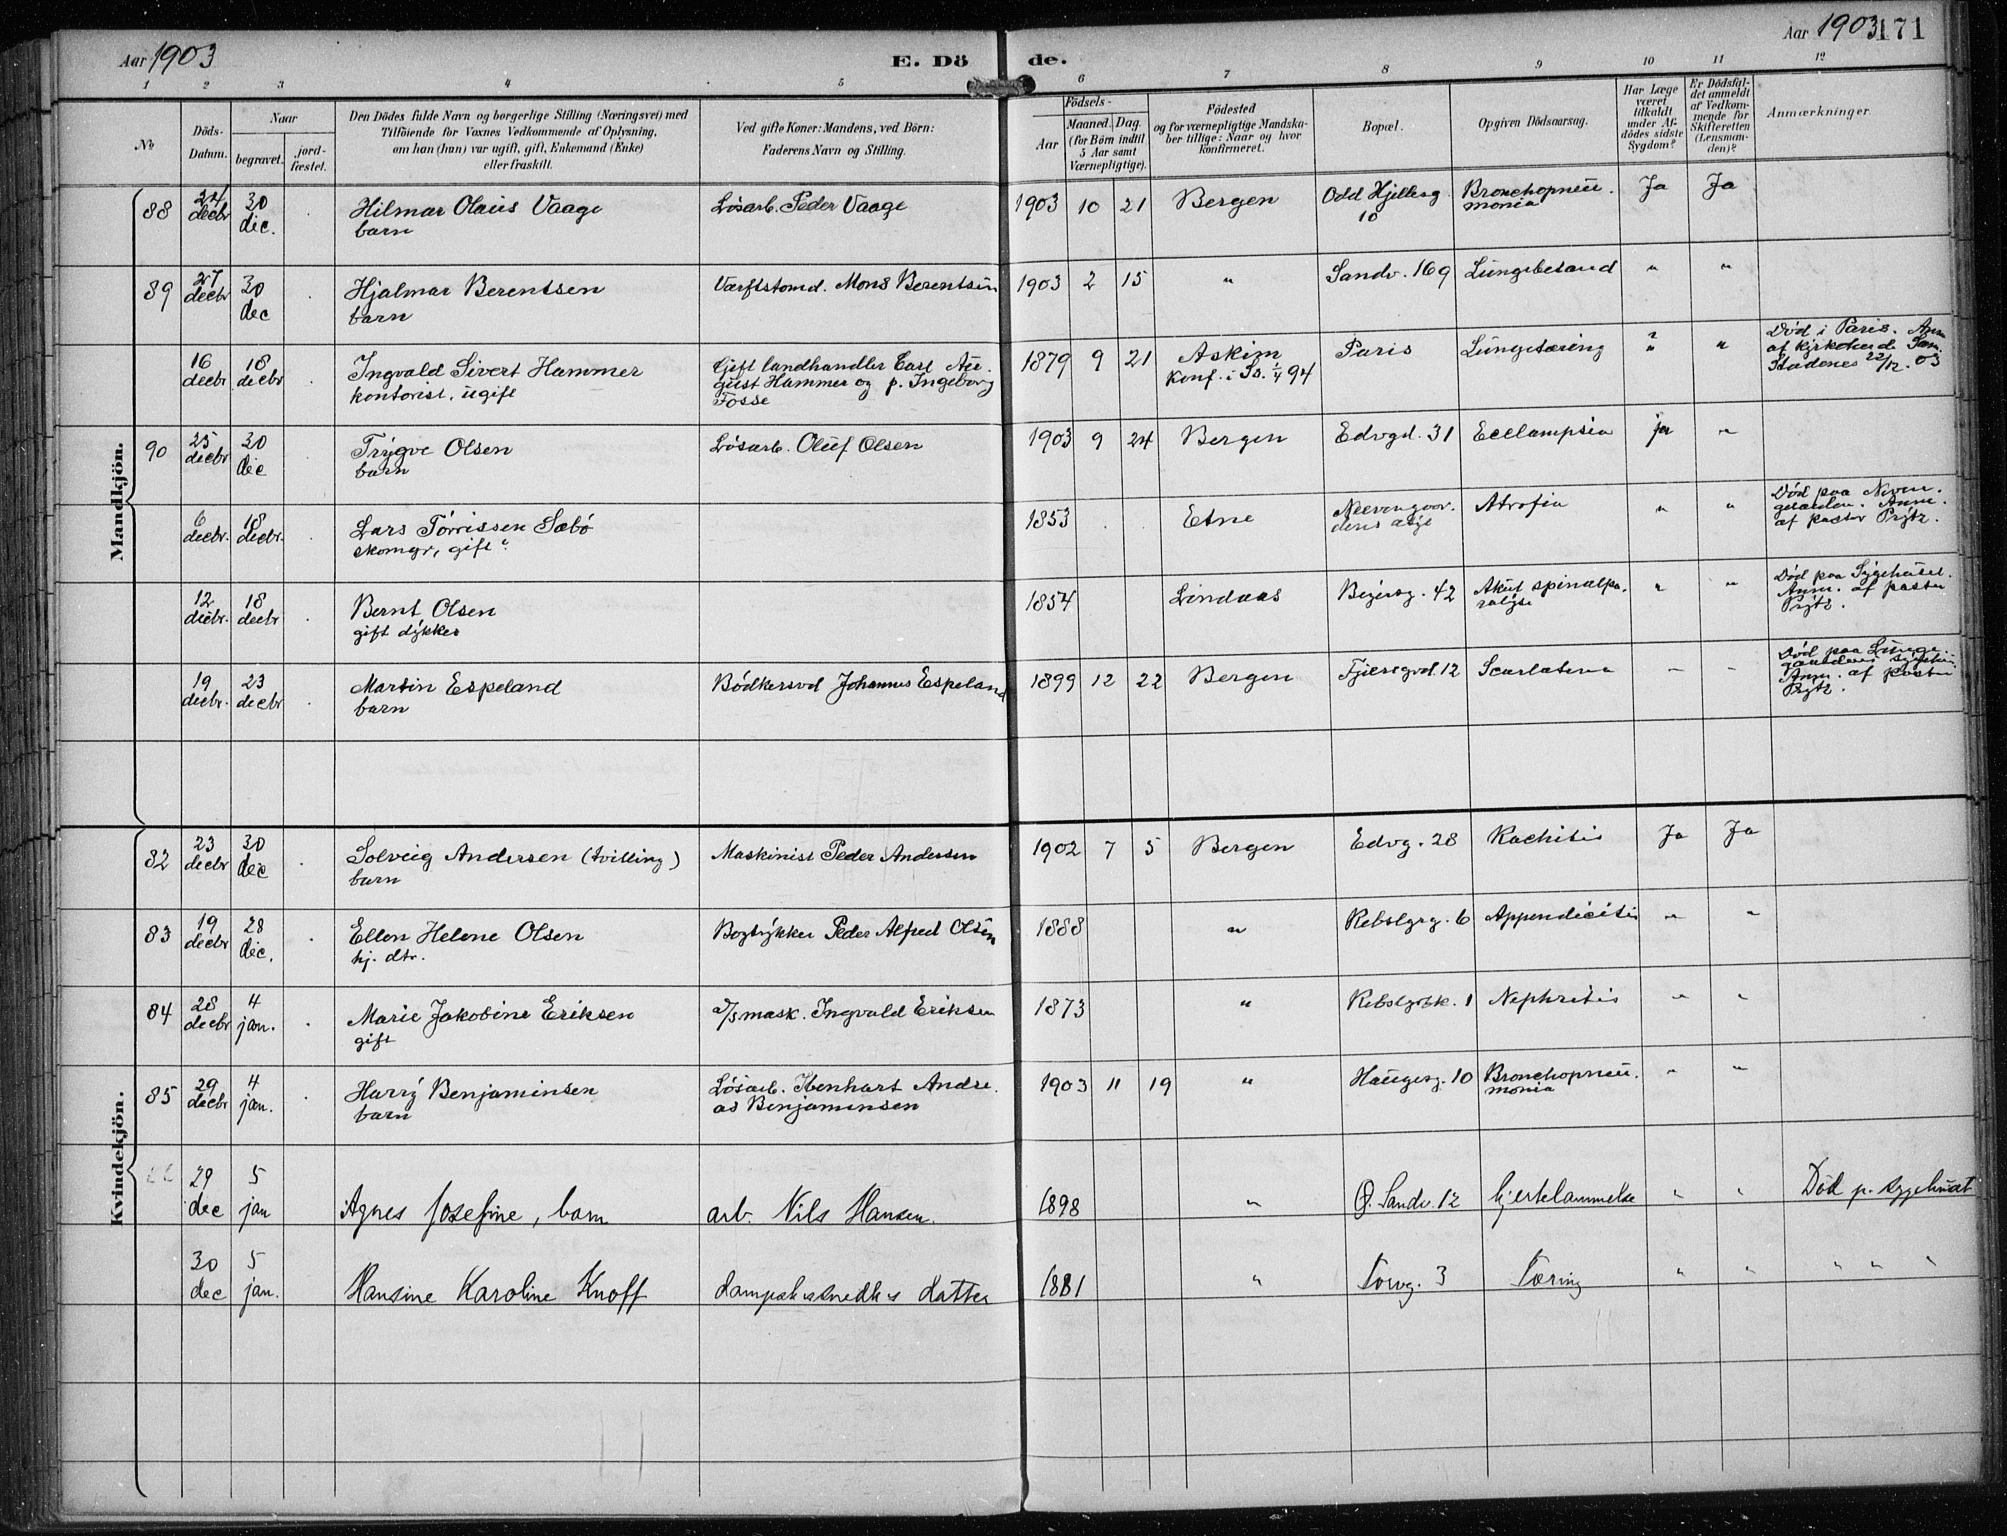 Aar 1903
E. Dö
de.
Aar 1903
171
1 2 3 4 5 6 7 8 9 10 11 12
No
Döds-Datum.
Naar
begravet.
jord-fæstet.
Den Dödes fulde Navn og borgerlige Stilling (Næringsvei) med
Tilföiende for Voxnes Vedkommende af Oplysning,
om han (hun) var ugift, gift, Enkemand (Enke)
eller fraskilt.
Ved gifte Koner: Mandens, ved Börn:
Faderens Navn og Stilling.
Födsels-
Aar
Maaned. Dag.
(for Börn indtil
5 Aar samt
Værnepligtige).
Födested
og for værnepligtige Mandska-
ber tillige: Naar og hvor
konfirmeret.
Bopæl.
Opgiven Dödsaarsag.
Har Læge
været
tilkaldt
under Af-
dödes sidste
Sygdom?
Er Dödsfal-
det anmeldt
af Vedkom-
mende for
Skifteretten
(Lensman-
den)?
Anmærkninger.
Mandkjön.
88 24 decbr 30 dec. Hilmar Olaus Vaage barn Løsarb. Peder Vaage 1903 10 21 Bergen Odd Hjellesg. 10 Bronchopneumonia Ja Ja
89 27 decbr 30 dec Hjalmar Berentsen barn Værftstømd. Mons Berentsen 1903 2 15 " Sandv. 169 Lungebetænd " "
16 decbr 18 decbr Ingvald Sivert Hammer kontorist, ugift Gift landhandler Carl August Hammer og p. Ingeborg Fosse 1879 9 21 Askim konf. i Sa. 1/4 94 Paris Lungetæring ? " " Død i Paris. Anm af kirkebetj. 22/12. 03
90 25 decbr 30 dec Trygve Olsen barn Løsarb. Oluf Olsen 1903 9 24 Bergen Edvgd. 31 Ecclampsia ja "
6 decbr. 18 decbr. Lars Tørrissen Sæbø skomgr, gift? 1853 Etne Neevengaardens asyl Atrofia " " Død paa Neevengaarden. Anm. af pastor Prytz.
12 decbr. 18 decbr Bernt Olsen gift dykker 1854 Lindaas Beyersg. 42 Akut spinalparalyse " " Død paa Sygehuset. Anm. af pastor Prytz.
19 decbr. 23 decbr Martin Espeland barn Bødkersvd Johannes Espeland 1899 12 22 Bergen Fjersgvd. 12 Scarlatina " " Død paa Lungegaardens sygehus. Anm. af pastor Prytz.
Kvindekjön.
82 23 decbr 30 dec Solveig Andersen (tvilling) barn Maskinist Peder Andersen 1902 7 5 Bergen Edvg. 28 Rachitis Ja Ja
83 19 decbr 28 dec. Ellen Helene Olsen hj. dtr. Bogtrykker Peder Alfred Olsen 1888 " Rebslgrg. 6 Appendicitis " "
84 28 decbr 4 jan. Marie Jakobine Eriksen gift D/s mask. Ingvald Eriksen 1873 " 1 Nephritis " "
85 29 decbr 4 jan. Harry Benjaminsen barn Løsarb. Ibenhart Andreas Benjaminsen 1903 11 19 " Haugesg. 10 Bronchopneumonia " "
29 dec 5 jan Agnes Josefine, barn arb. Nils Hansen. 1898 " Ø. Sandv. 12 hjertelammelse " " Død p. sygehuset
30 dec 5 jan. Hansine Karoline Knoff datter 1881 " Torvg. 3 Tæring " " " " "